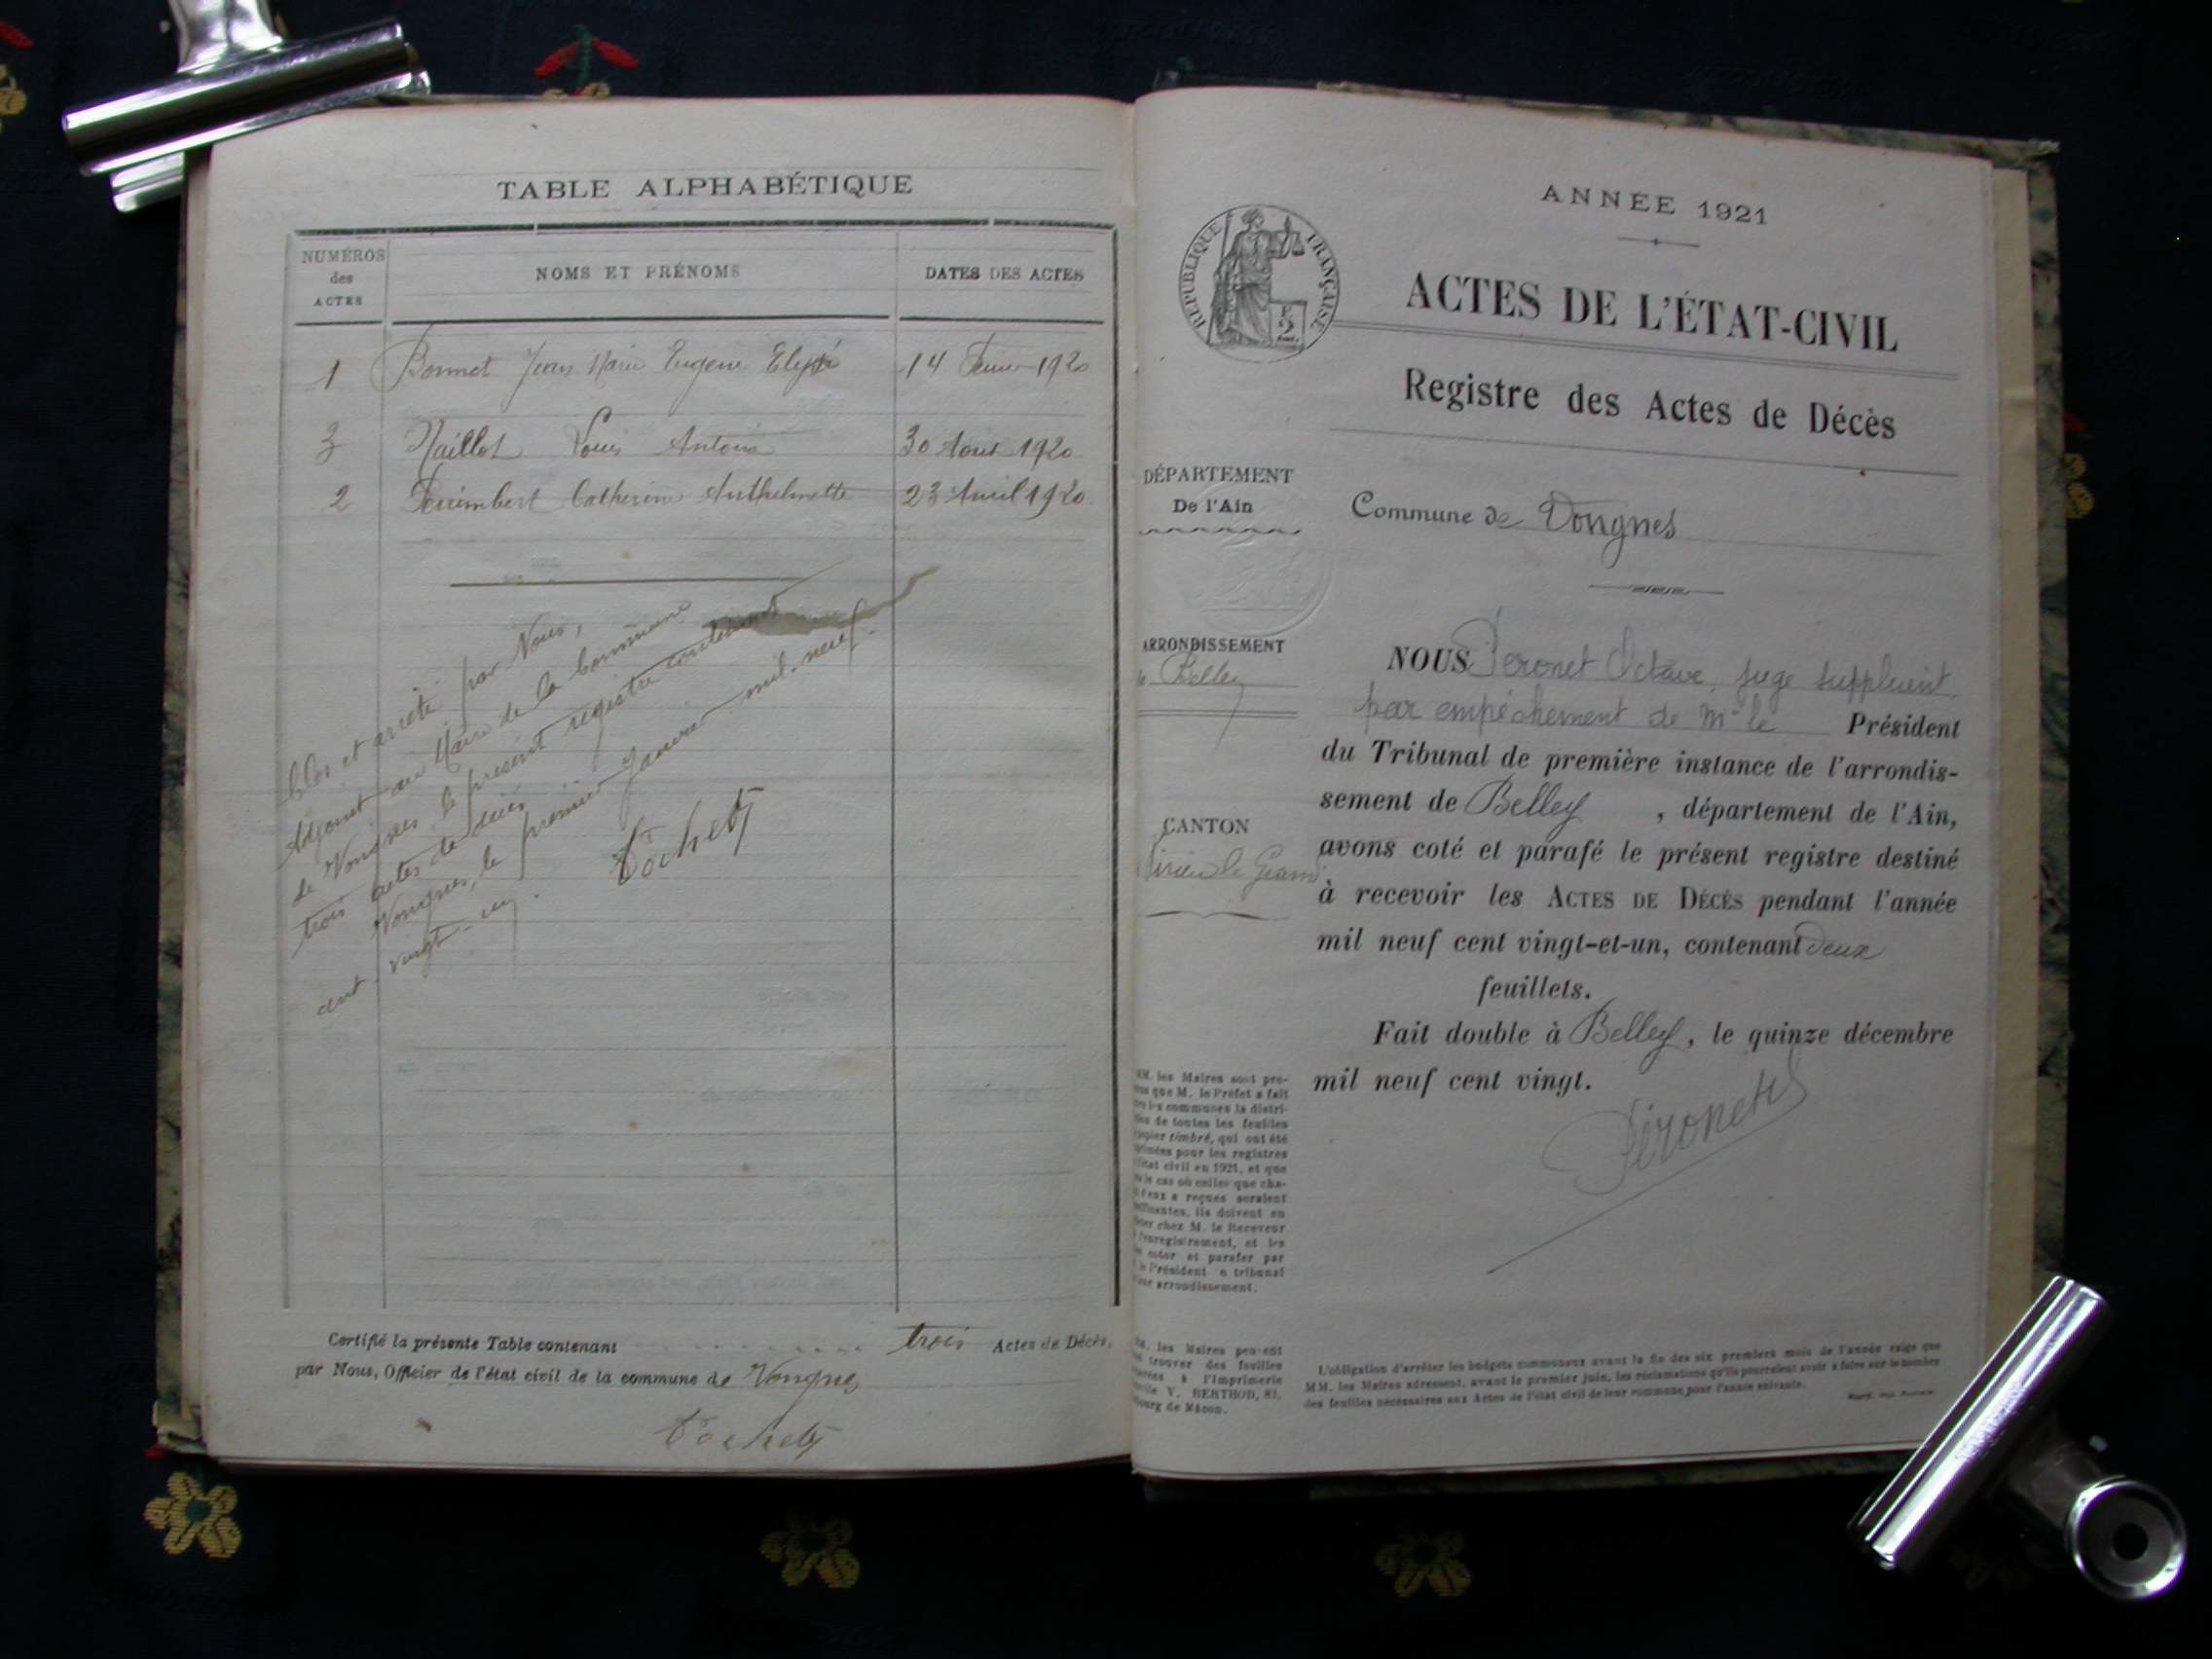 TABLE ALPHABÉTIQUE
NUMÉROS
des
ACTES
NOMS ET PRÉNOMS
DATES DES ACTES
1 Bonnet Jean Marie Eugène Elysé 14 1920
3 Maillot Louis Antoine 30 Aout 1920
2 Perrimbert Catherine Anthelmette 23 Avril 1920
Clos et arrêté par Nous,
Adjoint au Maire de la Commune
de Vongnes le présent registre contenant
trois actes de décès
Vongnes, le premier Janvier mil-neuf-
cent vingt-un.
Certifié la présente Table contenant trois Actes de Décès,
par Nous, Officier de l'état civil de la commune de Vongnes
ANNÉE 1921
RÉPUBLIQUE FRANÇAISE
2
ACTES DE L'ÉTAT-CIVIL
Registre des Actes de Décès
DÉPARTEMENT
De l'Ain
Commune de Vongnes
ARRONDISSEMENT
Belley
CANTON
NOUS Peronet Octave, juge suppléant
par empêchement de Mr le Président
du Tribunal de première instance de l'arrondis-
sement de Belley, département de l'Ain,
avons coté et parafé le présent registre destiné
à recevoir les ACTES DE DÉCÈS pendant l'année
mil neuf cent vingt-et-un, contenant deux
feuillets.
Fait double à Belley, le quinze décembre
mil neuf cent vingt.
Péronet
MM. les Maires sont pré-
que M. le Préfet a fait
les communes la distri-
de toutes les feuilles
papier timbré, qui ont été
imprimées pour les registres
l'état civil en 1921, et que
le cas où celles que cha-
d'eux a reçues seraient
insuffisantes, ils doivent en
chez M. le Receveur
l'enregistrement, et les
coter et parafer par
le Président tribunal
arrondissement.
les Maires peuvent
trouver des feuilles
à l'Imprimerie
V. BERTHOD, 81,
bourg de Mâcon.
L'obligation d'arrêter les budgets communaux avant la fin des six premiers mois de l'année exige que
MM. les Maires adressent, avant le premier juin, les réclamations qu'ils pourraient avoir à faire sur le nombre
des feuilles nécessaires aux Actes de l'état civil de leur commune pour l'année suivante.